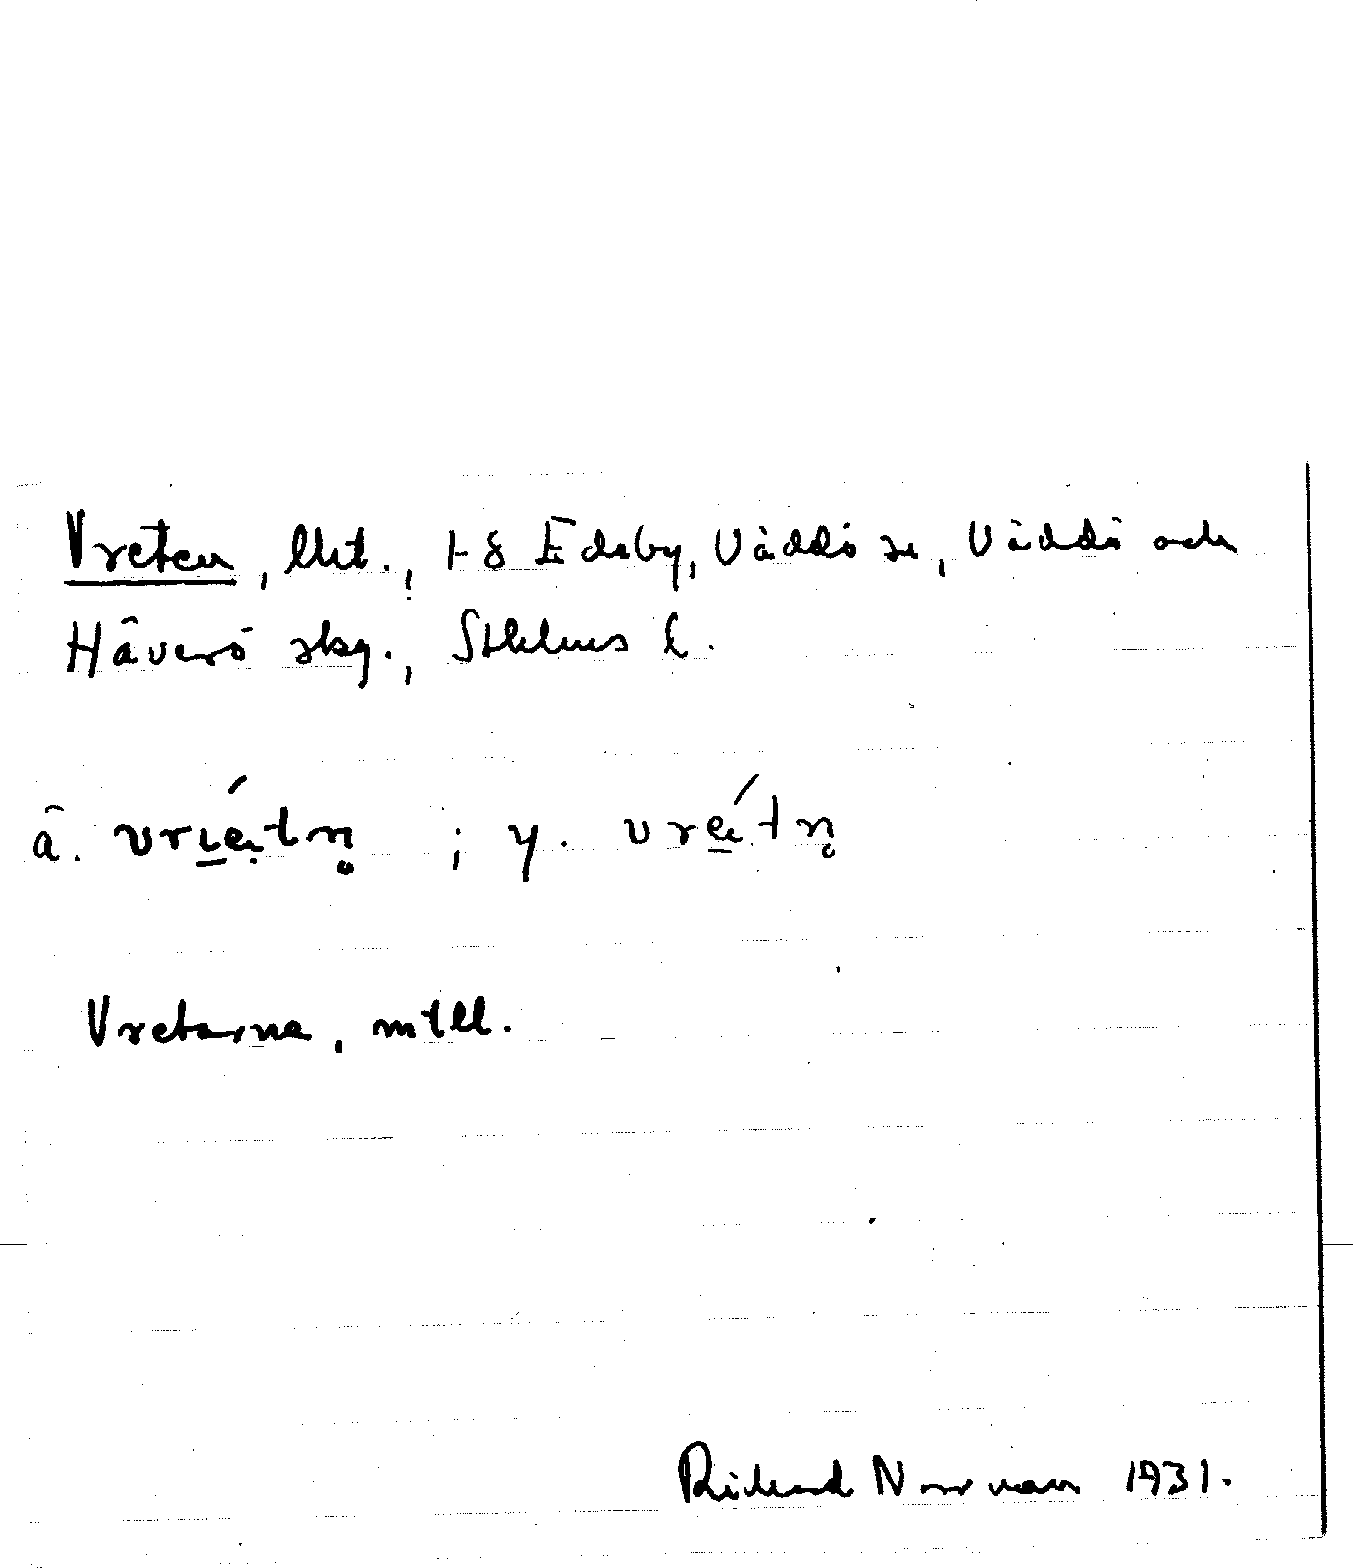 Vreten, lht., t 8 Edeby, Väddö sn, Väddö och
Häverö skg., Sthlms l.
ä. vrıé̱.tn̥ ; y. vré̱.tn̥
Vretarna, mtll.
Rickard Norman 1931.